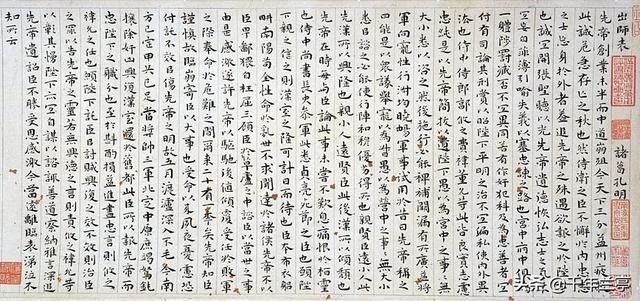 出師表 諸葛孔明
先帝創業未半而中道崩殂今天下三分益州疲
此誠危急存亡之秋也然侍衛之臣不懈於內忠
之士忘身於外者蓋追先帝之殊遇欲報之於陛
也誠宜開張聖聽以光先帝遺德恢弘志士之氣
宜妄自菲薄引喻失義以塞忠諫之路也宮中府中俱
體陟罰臧否不宜異同若有作姦犯科及為忠善者宜
付有司論其刑賞以昭陛下平明之治不宜偏私使內外異
法也侍中侍郎郭攸之費禕董允等此皆良實志慮
忠純是以先帝簡拔以遺陛下愚以為宮中之事事無
大小悉以咨之然後施行必能裨補闕漏有所廣益將
軍向寵性行淑均曉暢軍事試用於昔日先帝稱之
曰能是以眾議舉寵為督愚以為營中之事事無大小
悉以咨之必能使行陣和穆優劣得所也親賢臣遠小人此
先漢所以興隆也親小人遠賢臣此後漢所以傾頹也
先帝在時每與臣論此事未嘗不歎息痛恨於桓靈
也侍中尚書長史參軍此悉貞亮死節之臣也願陛
下親之信之則漢室之隆可計日而待也臣本布衣躬
耕南陽苟全性命於亂世不求聞達於諸侯先帝不以
臣卑鄙猥自枉屈三顧臣於草廬之中諮臣以當世之事
由是感激遂許先帝以驅馳後值傾覆受任於敗軍
之際奉命於危難之間爾來二十有一年矣先帝知臣
謹慎故臨崩寄臣以大事也受命以來夙夜憂慮恐
付託不效以傷先帝之明故五月渡瀘深入不毛今南
方已定甲兵已足當獎帥三軍北定中原庶竭駑鈍
攘除姦凶興復漢室還於舊都此臣所以報先帝而忠
陛下之職分也至於斟酌損益進盡忠言則攸之
禕允之任也願陛下託臣以討賊興復之效不效則治臣
之罪以告先帝之靈若無興德之言則責攸之禕允等
以彰其慢陛下亦宜自謀以諮諏善道察納雅言深追
先帝遺詔臣不勝受恩感激今當遠離臨表涕泣不
知所云